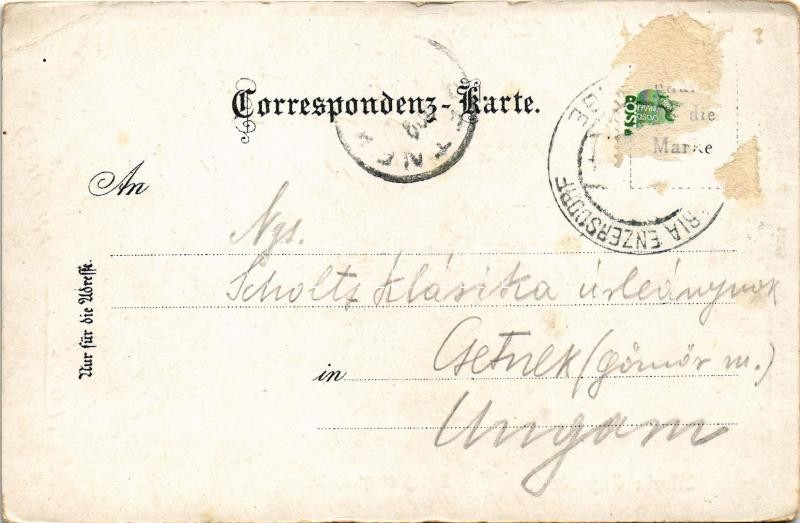 Correspondenz-Karte.
die
Marke
RIA ENZERSDORF
GE
POST
FRAN
CISCUS
An
Ngs.
Scholtz Klárika úrleánynok
in Csetnek (Gömör m.)
Ungarn
Nur für die Adresse.